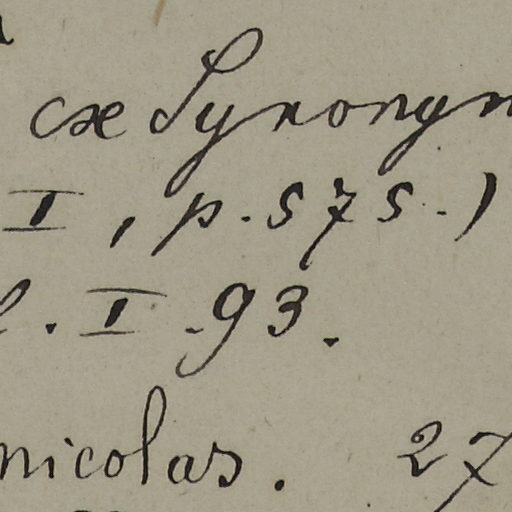 cæ Synonym
I, p. 575.)
l. I. 93.
nicolas. 27